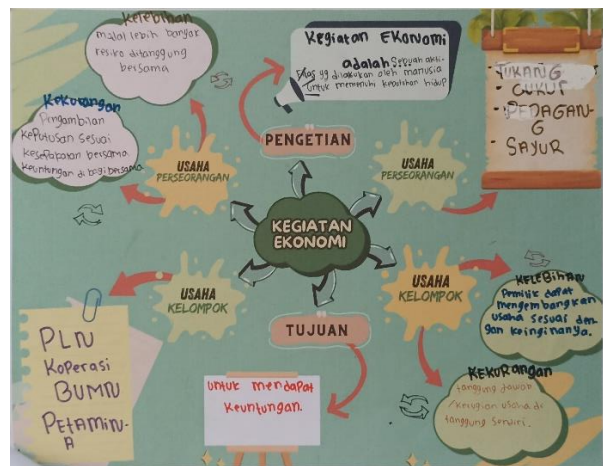 Kelebihan
modal lebih banyak
resiko ditanggung
bersama
Kekurangan
Pengambilan
Keputusan sesuai
Kesepakatan bersama
Keuntungan di bagi bersama
USAHA
PERSEORANGAN
Kegiatan EKonomi
adalah Sebuah akti-
fitas yg dilakukan oleh manusia
untuk memenuhi kebutuhan hidup
PENGETIAN
USAHA
PERSEORANGAN
TUKANG
CUKUR
PEDAGAN-
G
SAYUR
KEGIATAN
EKONOMI
USAHA
KELOMPOK
PLN
Koperasi
BUMN
PetAmiN-
A
TUJUAN
untuk mendapat
Keuntungan.
USAHA
KELOMPOK
KELEBIHAN
Pemilik dapat
mengembangkan
usaha sesuai den-
gan keinginanya.
KEKURangan
tanggung jawab
/kerugian usaha di
tanggung sendiri.